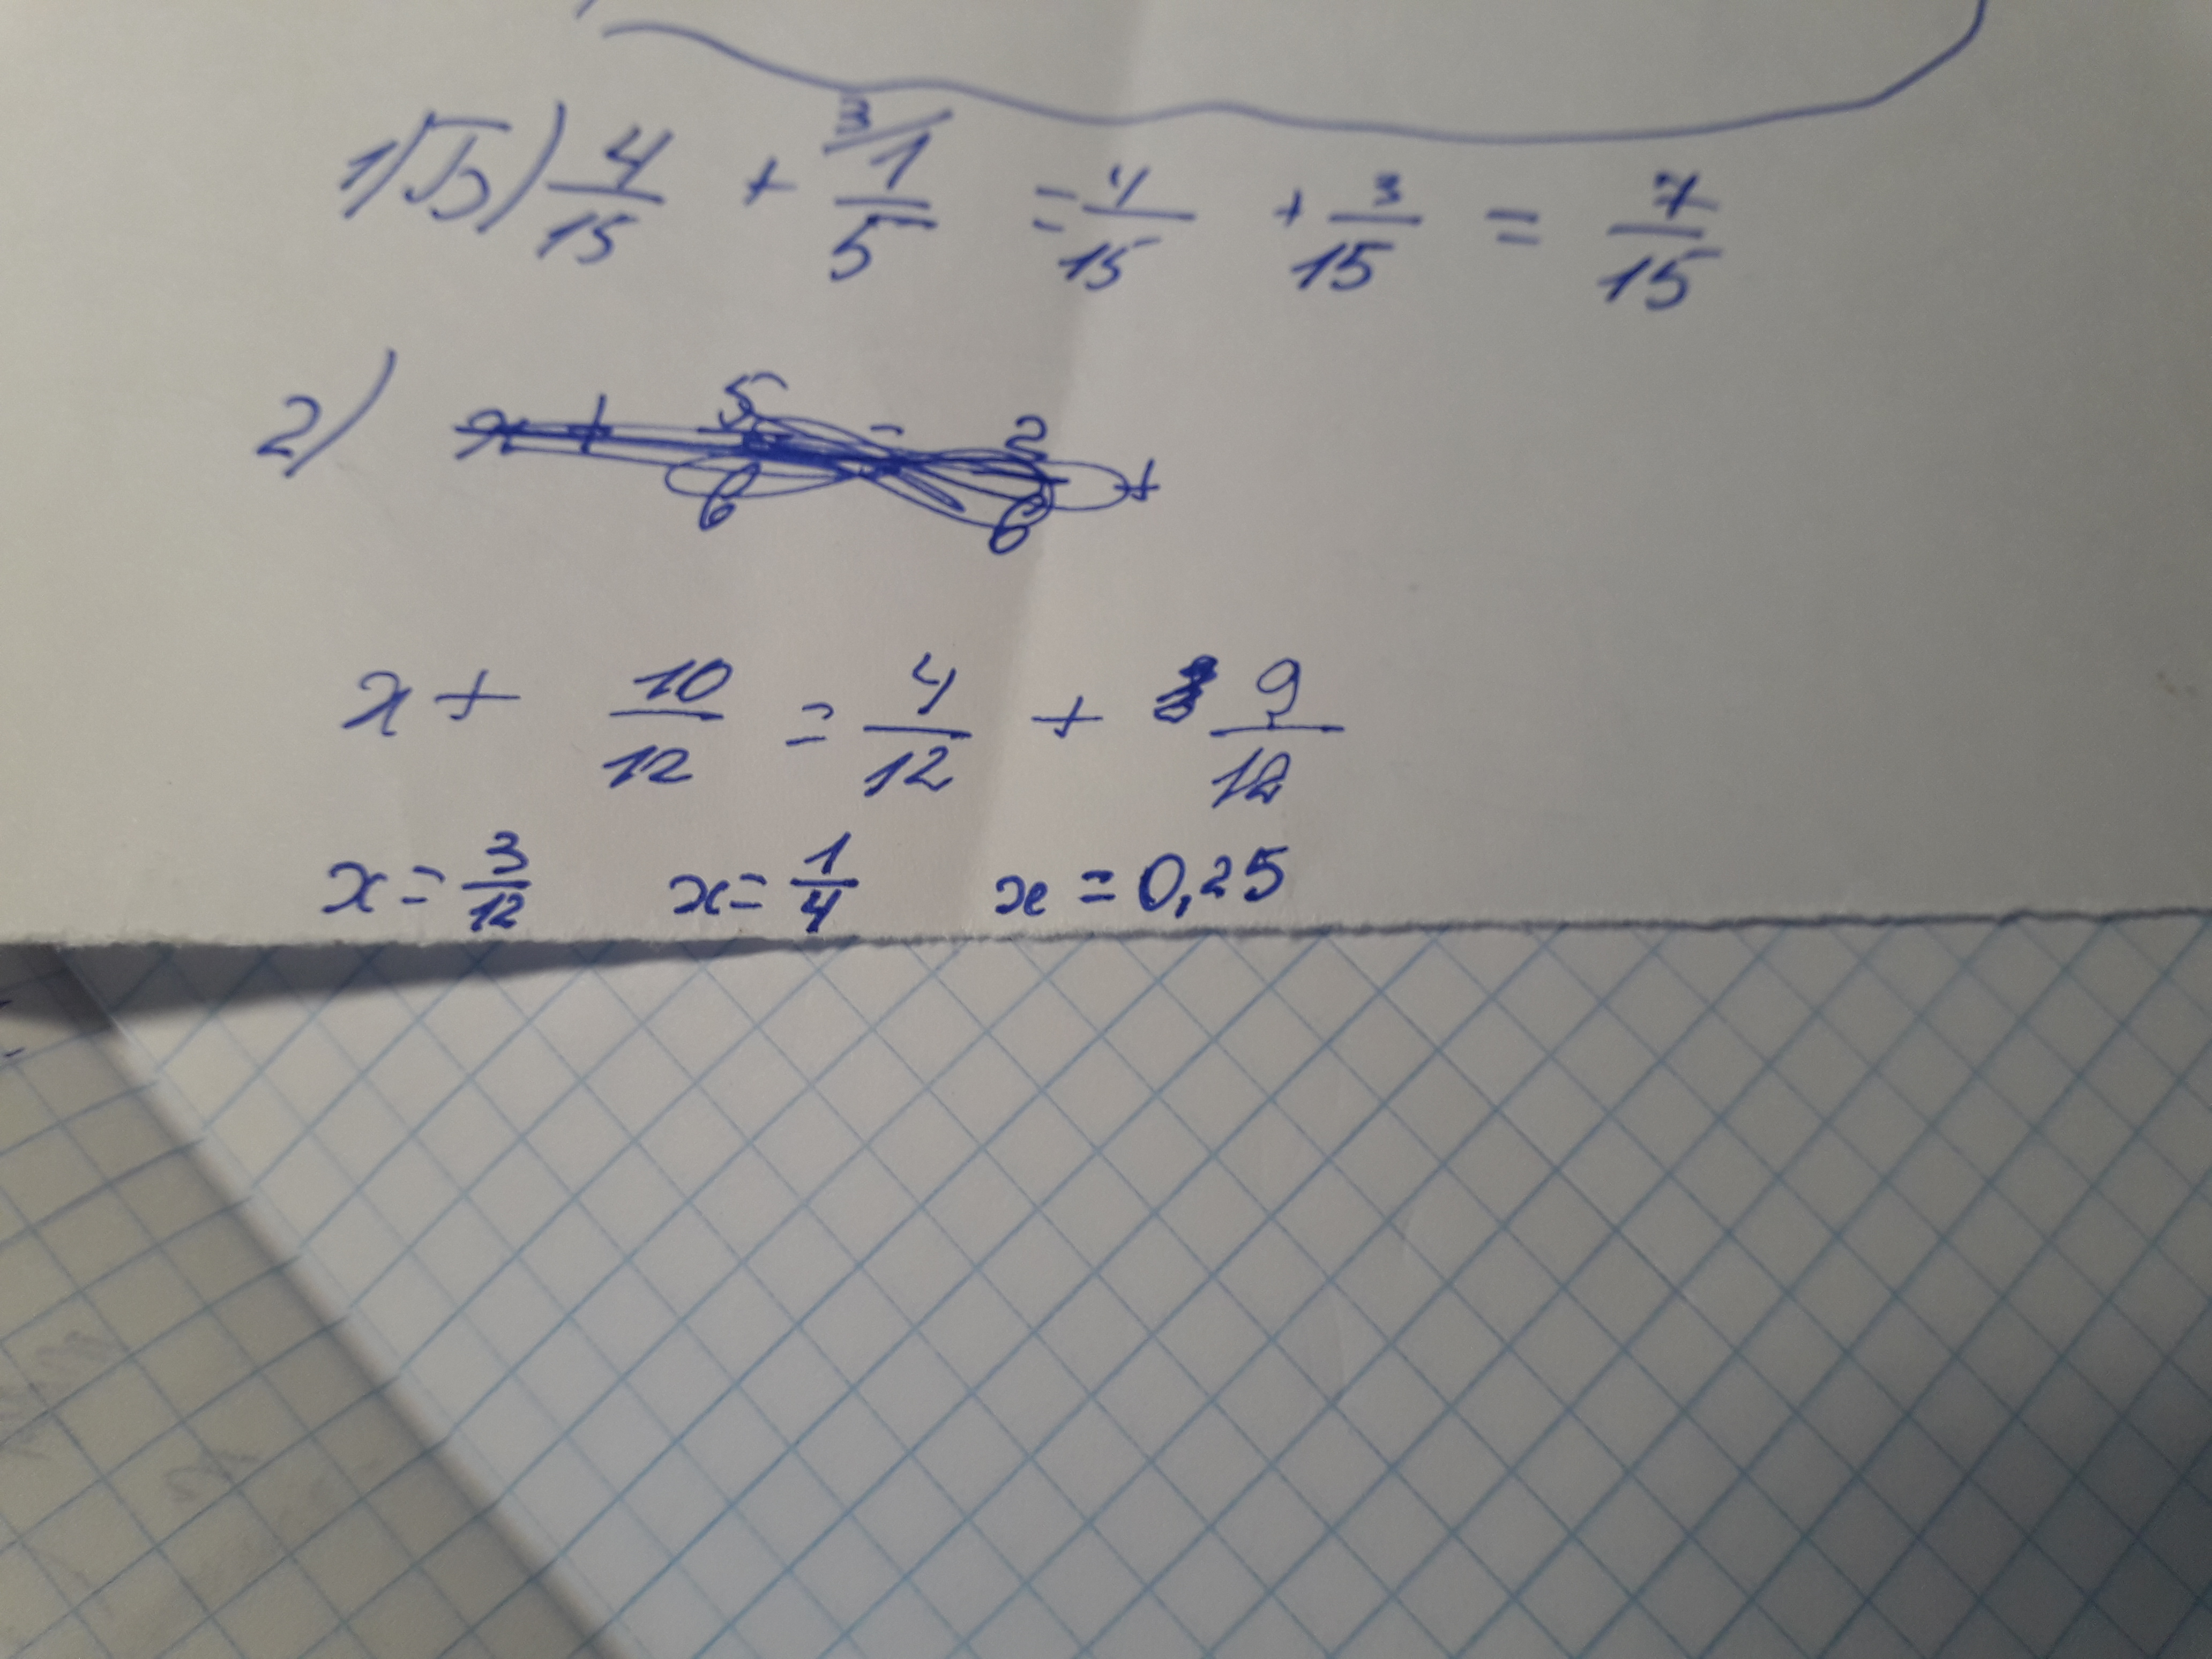 1) Б) 4/15 + ³⁄1/5 = 4/15 + 3/15 = 7/15
2) x + 5/6 = 2/6 +
x + 10/12 = 4/12 + 9/12
x = 3/12 x = 1/4 x = 0,25